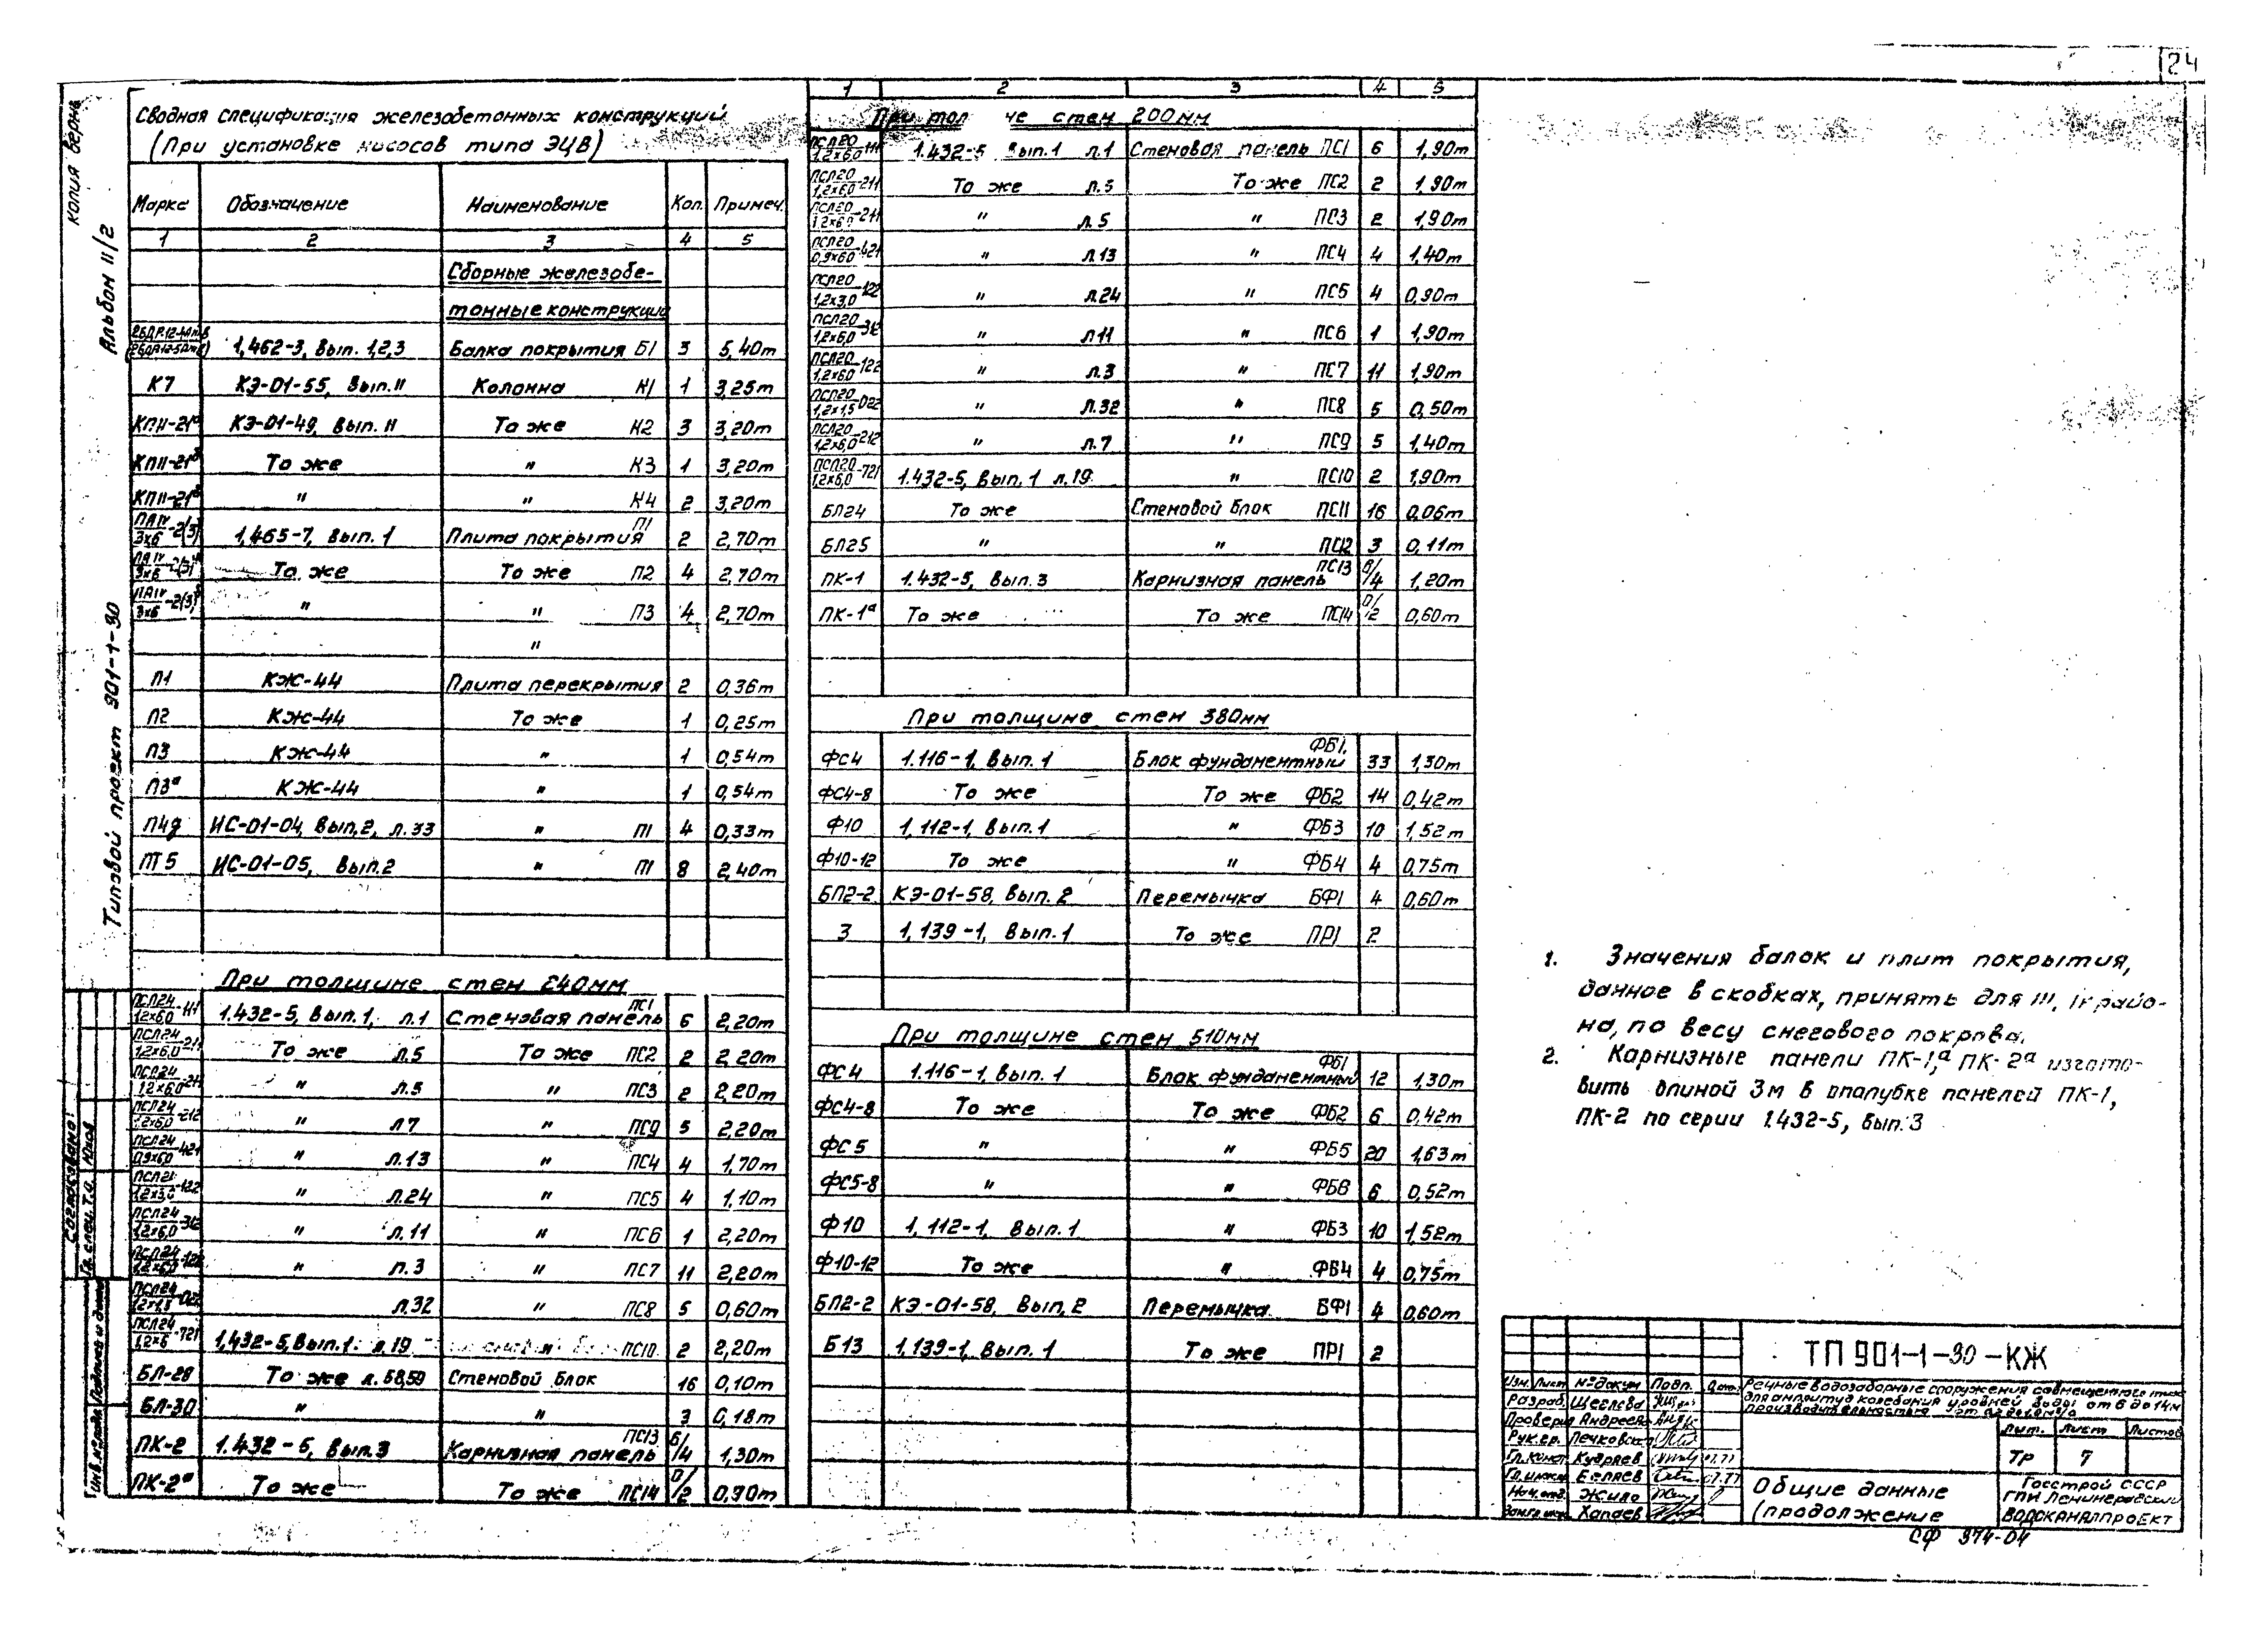 24
копия верна
Альбом II/2
Типовой проект 901-1-30
Согласовано:
Сводная спецификация железобетонных конструкций
(При установке насосов типа ЭЦВ)
Марка Обозначение Наименование Кол. Примеч.
1 2 3 4 5
Сборные железобе-
тонные конструкции
1,462-3, Вып. 1,2,3 Балка покрытия Б1 3 5,40т
К7 КЭ-01-55, Вып. II Колонна К1 1 3,25т
КПII-21ª КЭ-01-49, Вып. II То же К2 3 3,20т
КПII-21 То же " К3 1 3,20т
КПII-21 " " К4 2 3,20т
ПАIV/3х6-2(3) 1,465-7, Вып. 1 Плита покрытия П1 2 2,70т
ПАIV/3х6-2(3) То же То же П2 4 2,70т
ПАIV/3х6-2(3) " " П3 4 2,70т
"
П1 КЖ-44 Плита перекрытия 2 0,36т
П2 КЖ-44 То же 1 0,25т
П3 КЖ-44 " 1 0,54т
П3ª КЖ-44 " 1 0,54т
П4д ИС-01-04, Вып. 2, л. 33 " П1 4 0,33т
ПТ5 ИС-01-05, Вып. 2 " П1 8 2,40т
При толщине стен 240мм
ПСЛ24/1,2х6,0-111 1.432-5, Вып. 1, л.1 Стеновая панель ПС1 6 2,20т
ПСЛ24/1,2х6,0-211 То же л.5 То же ПС2 2 2,20т
ПСЛ24/1,2х6,0-211 " л.5 " ПС3 2 2,20т
ПСЛ24/1,2х6,0-212 " л7 " ПС9 5 2,20т
ПСЛ24/0,9х6,0-421 " л.13 " ПС4 4 1,70т
ПСЛ24/1,2х3,0-122 " л.24 " ПС5 4 1,10т
ПСЛ24/1,2х6,0-312 " л.11 " ПС6 1 2,20т
ПСЛ24/1,2х6,0-122 " л.3 " ПС7 11 2,20т
ПСЛ24 л.32 " ПС8 5 0,60т
ПСЛ24/1,2х6-721 1,432-5, Вып. 1 л.19 " ПС10 2 2,20т
БЛ-29 То же л. 58,59 Стеновой блок 16 0,10т
БЛ-30 " " 3 0,18т
ПК-2 1.432-5, Вып. 3 Карнизная панель ПС13 Б/4 1,30т
ПК-2ª То же То же ПС14 0/2 0,90т
1 2 3 4 5
При тол че стен 200мм
ПСЛ20/1,2х6,0-111 1.432-5 Вып. 1 л.1 Стеновая панель ПС1 6 1,90т
ПСЛ20/1,2х6,0-211 То же л.5 То же ПС2 2 1,90т
ПСЛ20/1,2х6,0-211 " л.5 " ПС3 2 1,90т
ПСЛ20/0,9х6,0-421 " л.13 " ПС4 4 1,40т
ПСЛ20/1,2х3,0-122 " л.24 " ПС5 4 0,90т
ПСЛ20/1,2х6,0-312 " л11 " ПС6 1 1,90т
ПСЛ20/1,2х6,0-122 " л.3 " ПС7 11 1,90т
ПСЛ20/1,2х1,5-022 " л.32 " ПС8 5 0,50т
ПСЛ20/1,2х6,0-212 " л.7 " ПС9 5 1,40т
ПСЛ20/1,2х6,0-721 1.432-5, Вып. 1 л.19 " ПС10 2 1,90т
БЛ24 То же Стеновой блок ПС11 16 0,06т
БЛ25 " " ПС12 3 0,11т
ПК-1 1.432-5, Вып. 3 Карнизная панель ПС13 Б/4 1,20т
ПК-1ª То же То же ПС14 0/2 0,60т
При толщине стен 380мм
ФС4 1.116-1, Вып. 1 Блок фундаментный ФБ1. 33 1,30т
ФС4-8 То же То же ФБ2 14 0,42т
Ф10 1,112-1, Вып. 1 " ФБ3 10 1,52т
Ф10-12 То же " ФБ4 4 0,75т
БП2-2 КЭ-01-58, Вып. 2 Перемычка БФ1 4 0,60т
3 1,139-1, Вып. 1 То же ПР1 2
При толщине стен 510мм
ФС4 1.116-1, Вып. 1 Блок фундаментный ФБ1 12 1,30т
ФС4-8 То же То же ФБ2 6 0,42т
ФС5 " " ФБ5 20 1,63т
ФС5-8 " " ФБ6 6 0,52т
Ф10 1,112-1, Вып. 1 " ФБ3 10 1,52т
Ф10-12 То же " ФБ4 4 0,75т
БП2-2 КЭ-01-58, Вып. 2 Перемычка БФ1 4 0,60т
Б13 1,139-1, Вып. 1 То же ПР1 2
1. Значения балок и плит покрытия,
данное в скобках, принять для III, IV райо-
на, по весу снегового покрова.
2. Карнизные панели ПК-1ª, ПК-2ª изгото-
вить длиной 3м в опалубке панелей ПК-1,
ПК-2 по серии 1.432-5, Вып. 3
ТП 901-1-30-КЖ
Изм. Лист № докум Подп. Дата
Разраб. Щеглева
Проверил Андреева
Рук. гр. Печковская
Гл. конст. Кудряев 07.77
Гл. инж. Беляев 07.77
Нач. отд. Жило
Хапаев
Речные водозаборные сооружения совмещенного типа
для амплитуд колебания уровней воды от 6 до 14м
производительностью
Лит. Лист Листов
ТР 7
Общие данные
(продолжение
Госстрой СССР
ГПИ Ленинградский
ВОДОКАНАЛПРОЕКТ
СФ 974-04